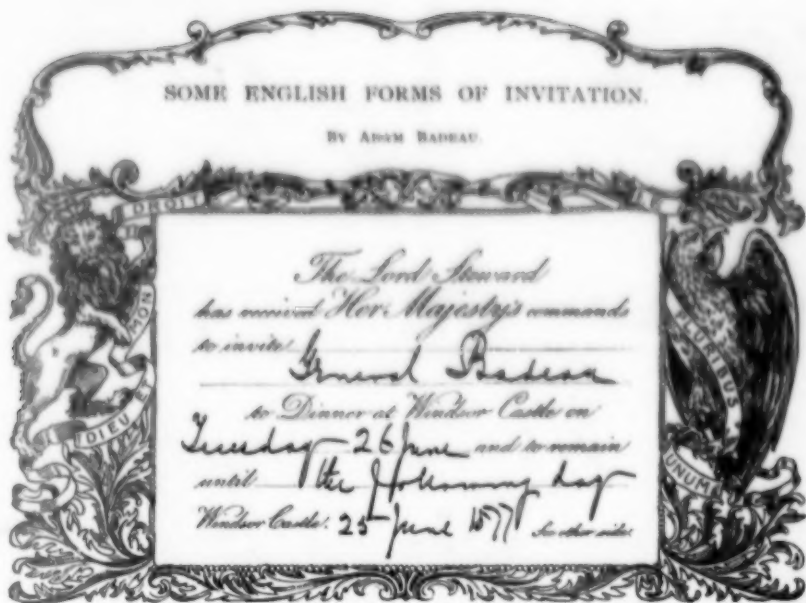 SOME ENGLISH FORMS OF INVITATION.
BY ADAM BADEAU.
DROIT
E
MON
DIEU ET
PLURIBUS
UNUM
The Lord Steward
has received Her Majesty's commands
to invite
General Badeau
to Dinner at Windsor Castle on
Tuesday 26 June and to remain
until the following day
Windsor Castle. 25 June 1877 See other side.